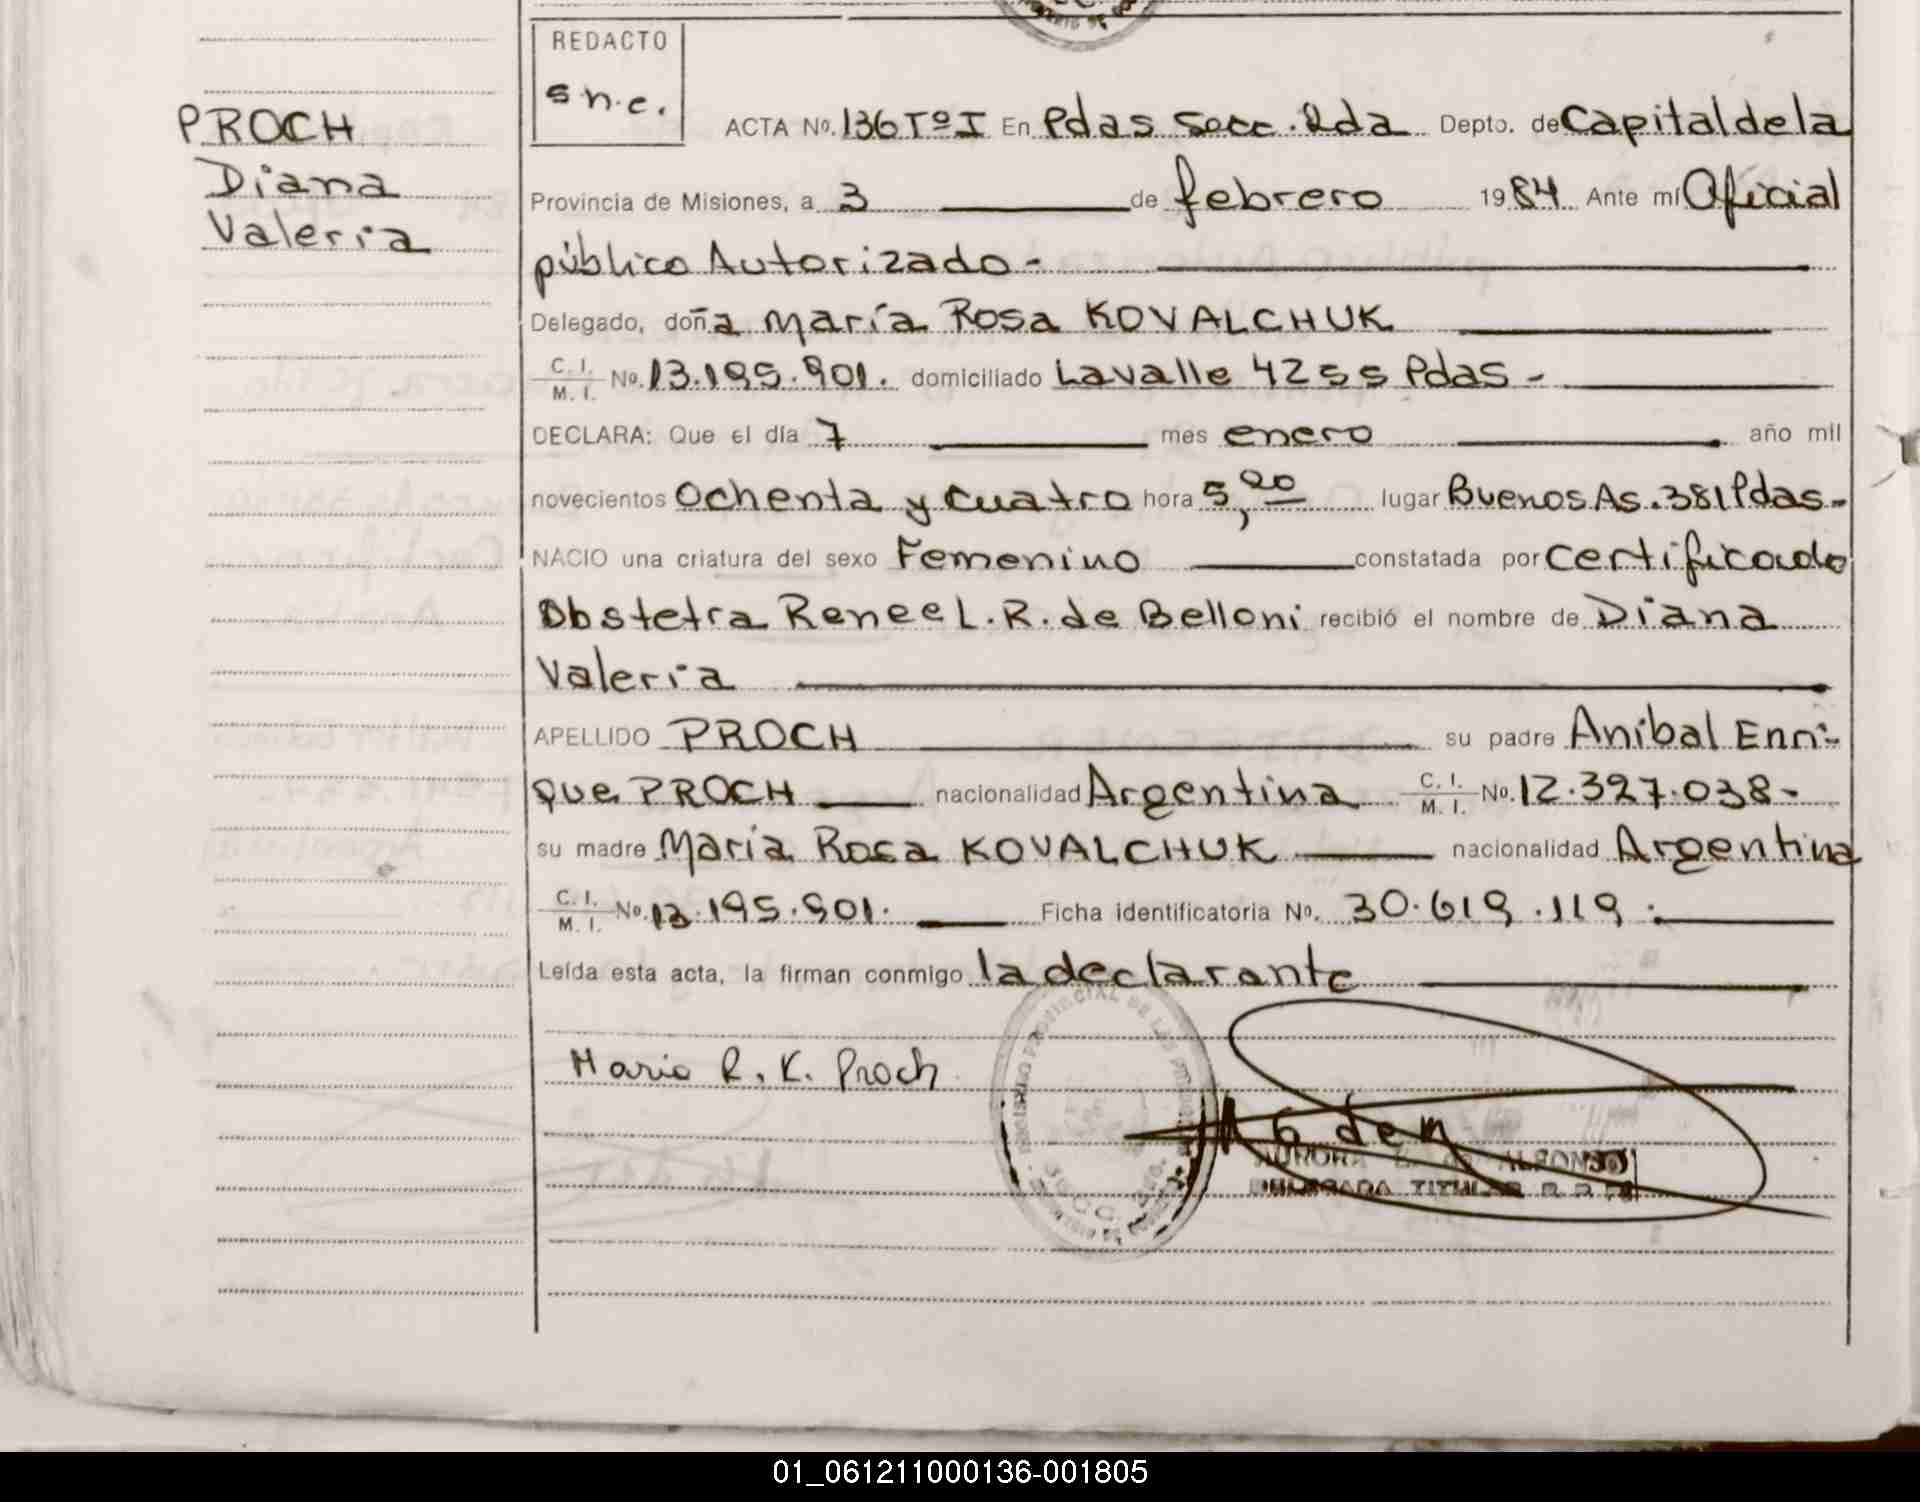 REDACTO
s n.e.
PROCH
Diana
Valeria
ACTA No. 136 Tº I En Pdas secc. 2da Depto. de Capital de la
Provincia de Misiones, a 3 de febrero 1984 Ante mí Oficial
público Autorizado -
Delegado, doña María Rosa KOVALCHUK
C. I. / M. I. No. 13.195.901. domiciliado Lavalle 4255 Pdas -
DECLARA: Que el día 7 mes enero año mil
novecientos Ochenta y cuatro hora 5,20 lugar Buenos As. 381 Pdas -
NACIO una criatura del sexo Femenino constatada por certificado
Obstetra Renee L. R. de Belloni recibió el nombre de Diana
Valeria
APELLIDO PROCH su padre Anibal Enri-
que PROCH nacionalidad Argentina C. I. / M. I. No. 12.327.038 -
su madre María Rosa KOVALCHUK nacionalidad Argentina
C. I. / M. I. No. 13.195.901. Ficha identificatoria No. 30.619.119.
Leída esta acta, la firman conmigo la declarante
Maria R. K. Proch
AURORA ALFONSO
DELEGADA TITULAR
01_061211000136-001805